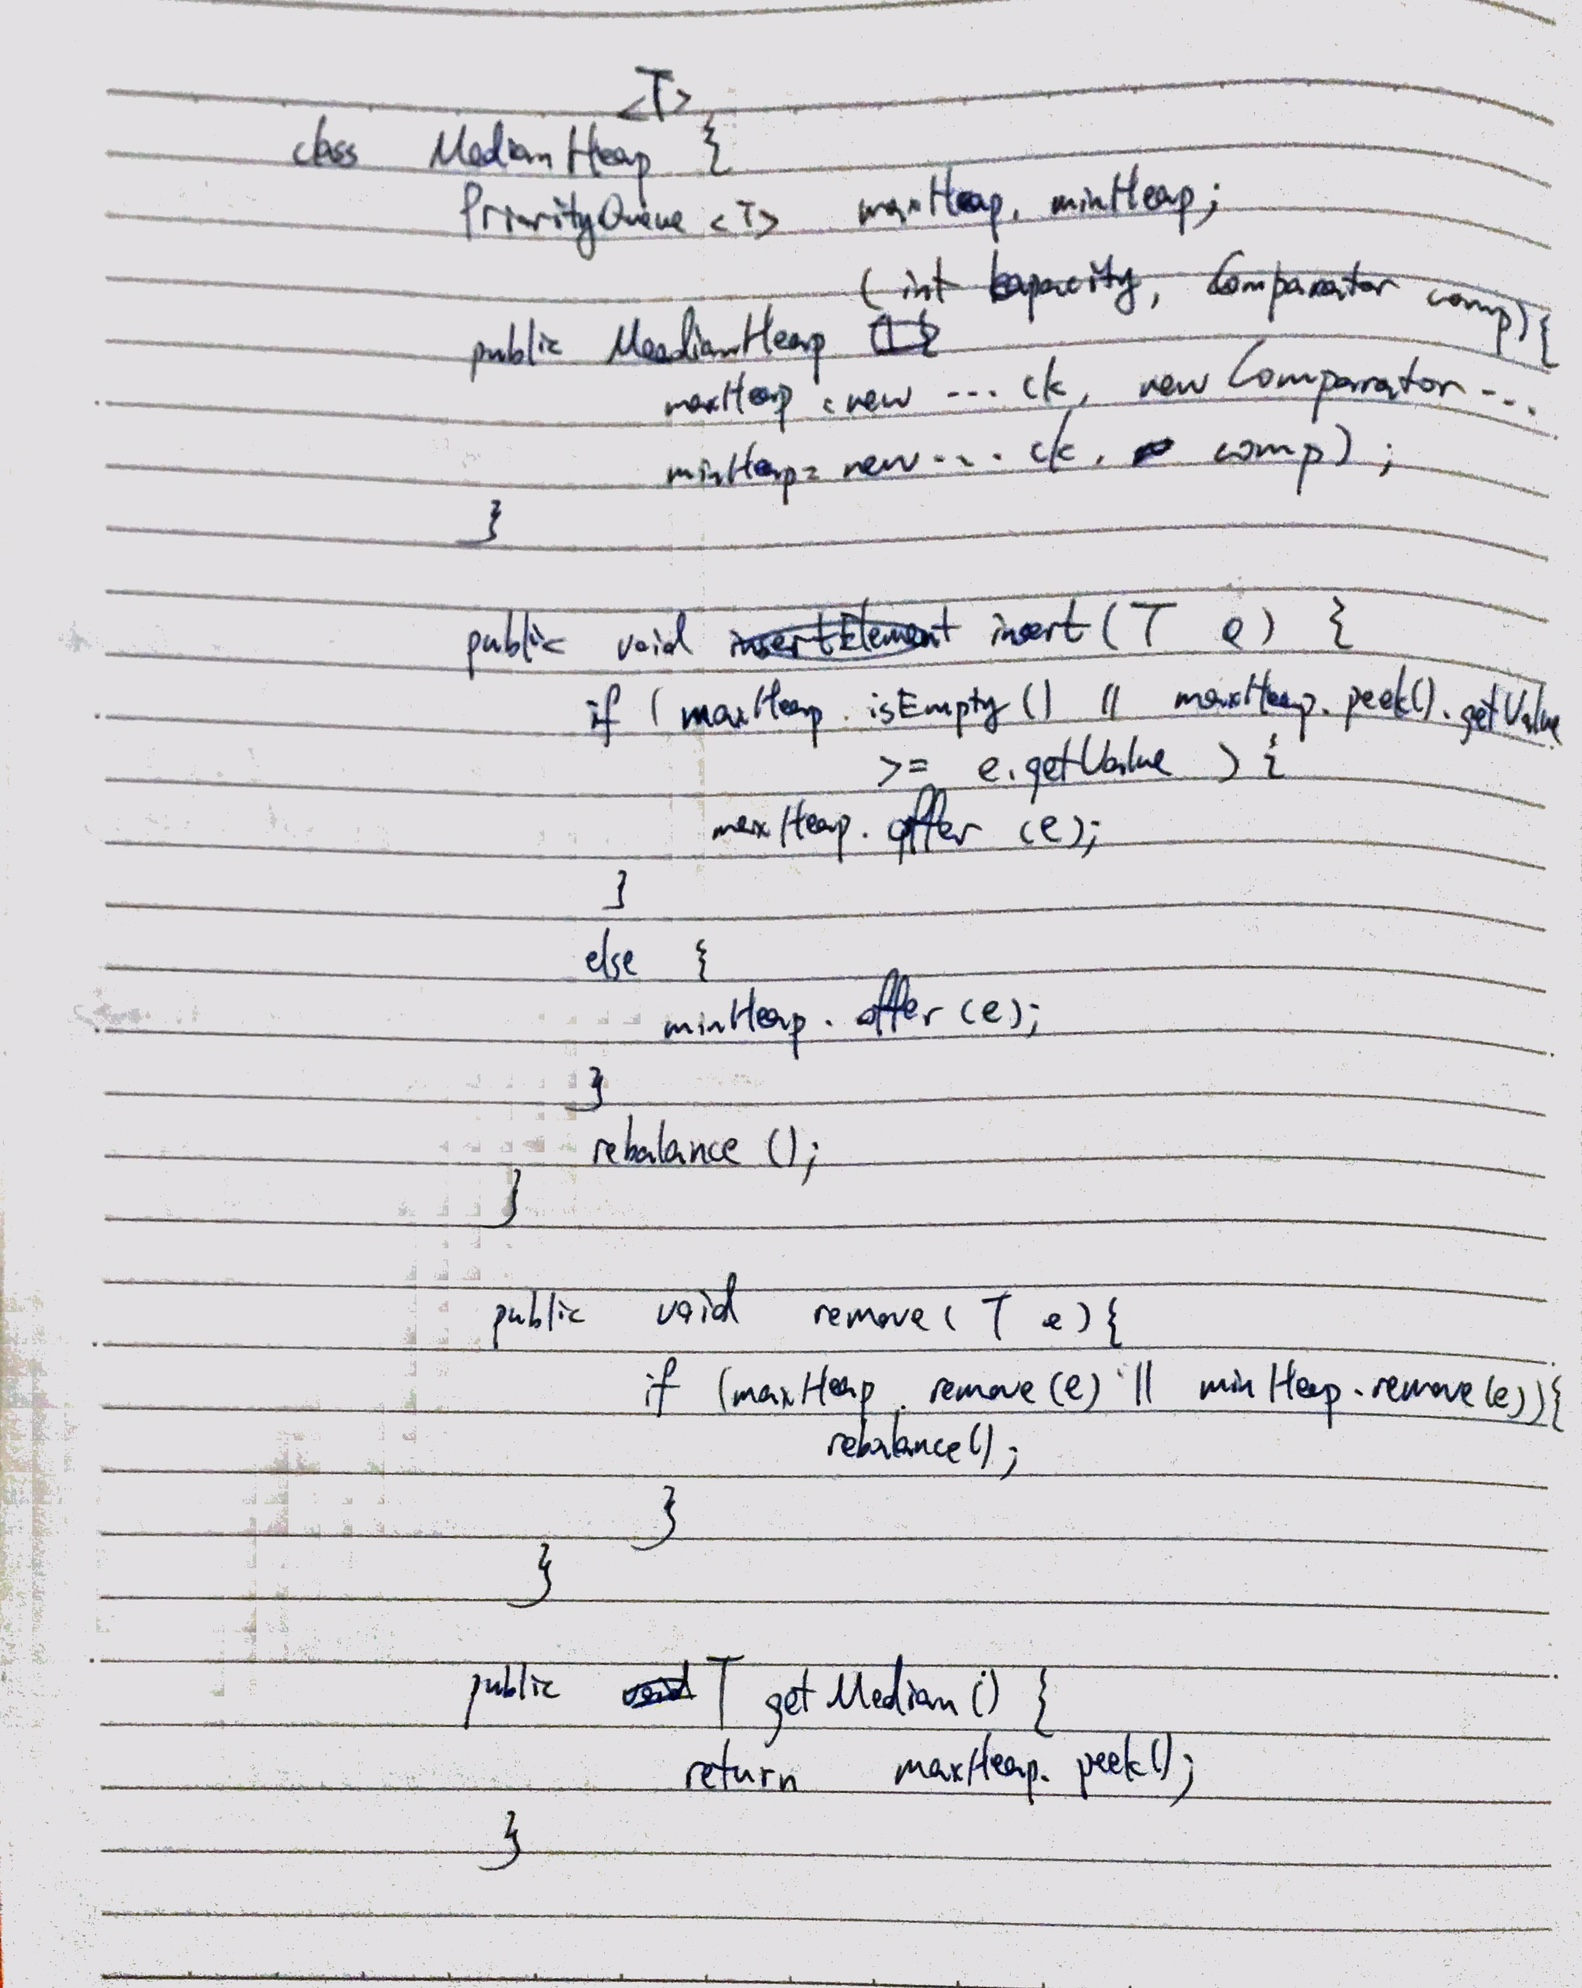 class MedianHeap <T> {
PriorityQueue <T> maxHeap, minHeap;
public MeadianHeap (int kapacity, Comparator comp){
maxHeap = new ... ck, new Comparator ...
minHeap = new ... ck, comp);
}
public void insertElement insert(T e) {
if (maxHeap.isEmpty() || maxHeap.peek().getValue
>= e.getValue ) {
maxHeap.offer (e);
}
else {
minHeap.offer(e);
}
rebalance ();
}
public void remove( T e){
if (maxHeap.remove(e) || minHeap.remove(e)){
rebalance();
}
}
public void T getMedian() {
return maxHeap.peek();
}